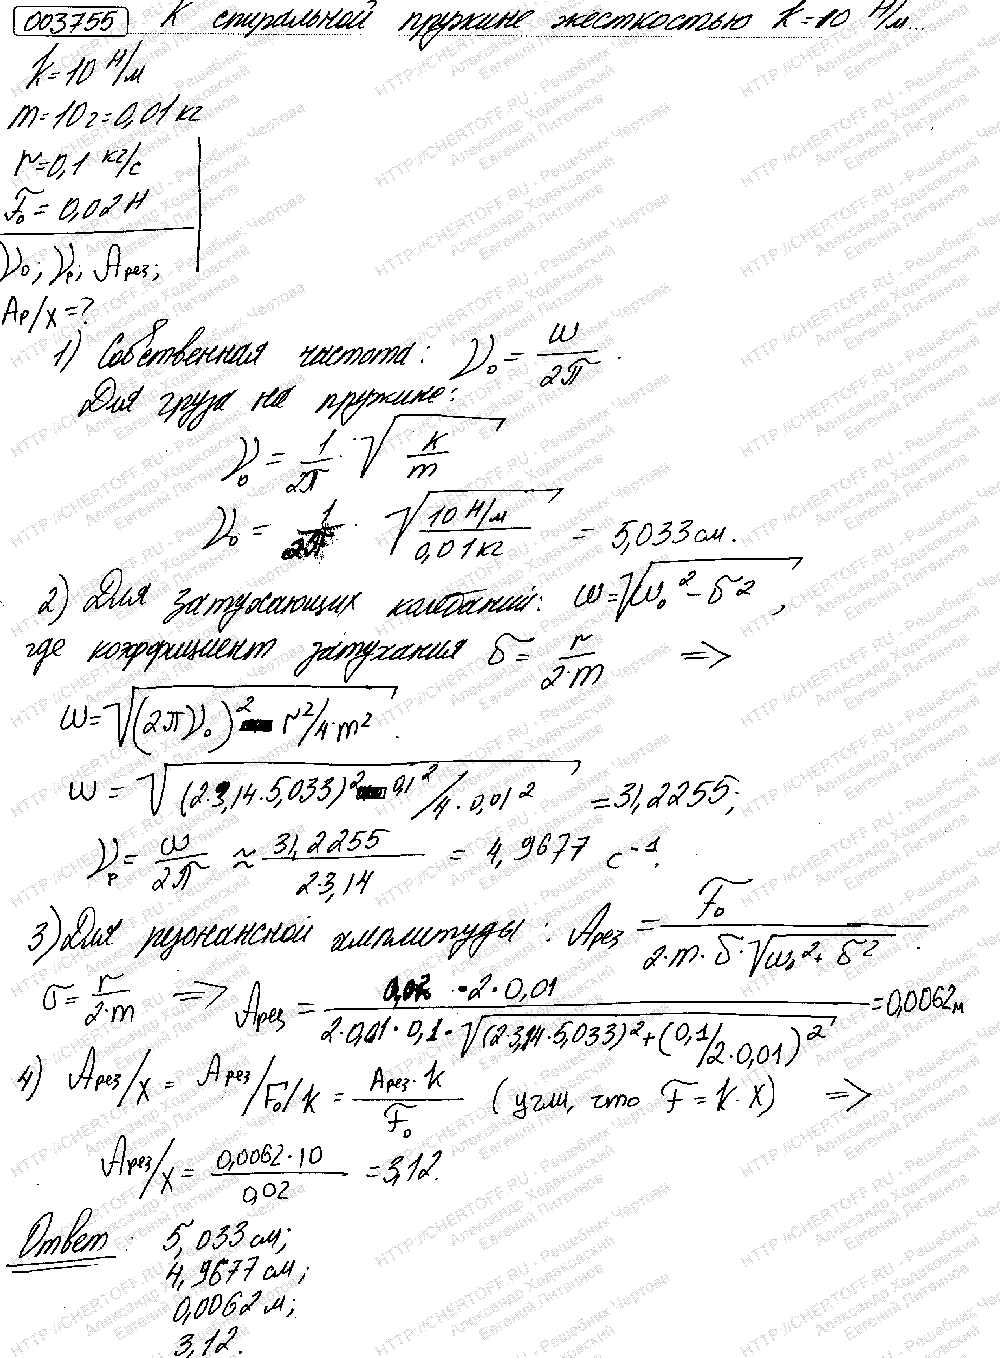 003755 К спиральной пружине жесткостью k=10 Н/м...
k=10 Н/м
m=10г=0,01кг
r=0,1 кг/с
F₀=0,02Н
ν₀; νр; Aрез;
Aр/x=?
1) Собственная частота: ν₀ = ω/2π.
Для груза на пружине:
ν₀ = 1/2π · √(k/m)
ν₀ = 1/2π · √(10 Н/м / 0,01кг) = 5,033см.
2) Для затухающих колебаний: ω=√(ω₀² − δ²),
где коэффициент затухания δ = r/2·m =>
ω=√((2πν₀)² − r²/4·m²).
ω = √((2·3,14·5,033)² − 0,1²/4·0,01²) =31,2255;
νр = ω/2π ≈ 31,2255/2·3,14 = 4,9677 с⁻¹.
3) Для резонансной амплитуды: Aрез = F₀/2·m·δ·√(ω₀²+δ²).
δ = r/2·m => Aрез = 0,02·2·0,01/2·0,01·0,1·√((2·3,14·5,033)²+(0,1/2·0,01)²) =0,0062м
4) Aрез/x = Aрез/F₀/k = Aрез·k/F₀ (учли, что F=k·x) =>
Aрез/x = 0,0062·10/0,02 =3,12.
Ответ: 5,033см;
4,9677см;
0,0062м;
3,12.
HTTP://CHERTOFF.RU - Решебник Чертова
Александр Ходаковский
Евгений Литвинов